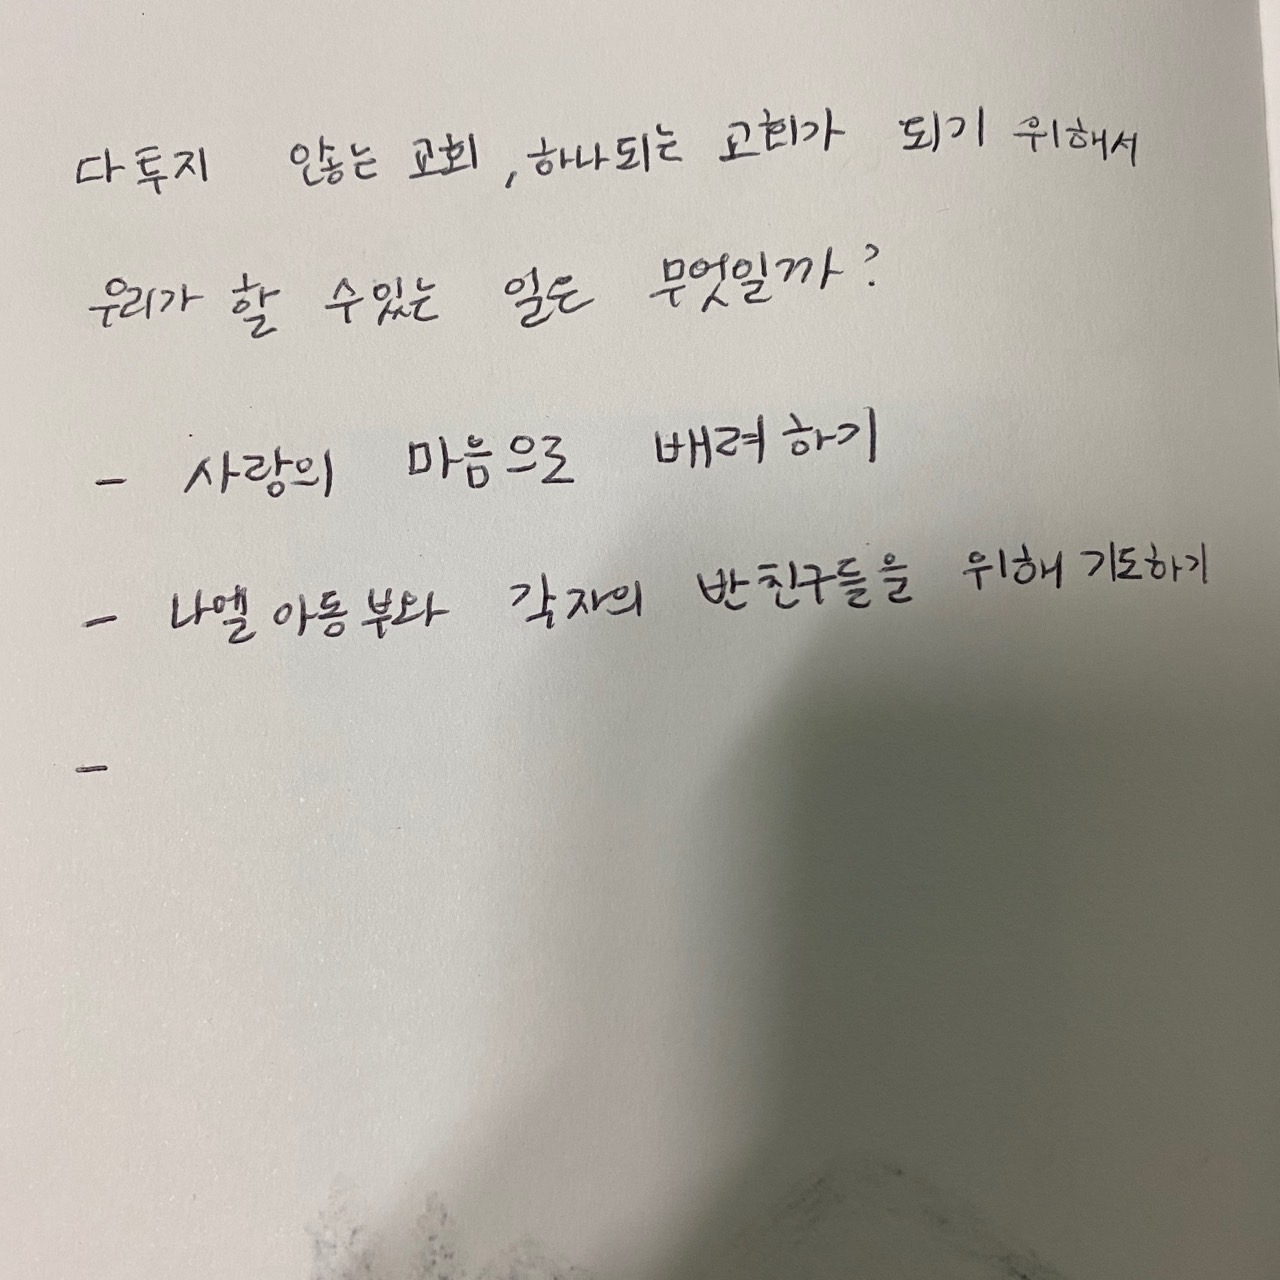 다투지 않는 교회, 하나되는 교회가 되기 위해서
우리가 할 수있는 일은 무엇일까?
- 사랑의 마음으로 배려하기
- 나엘 아동부와 각자의 반친구들을 위해 기도하기
-